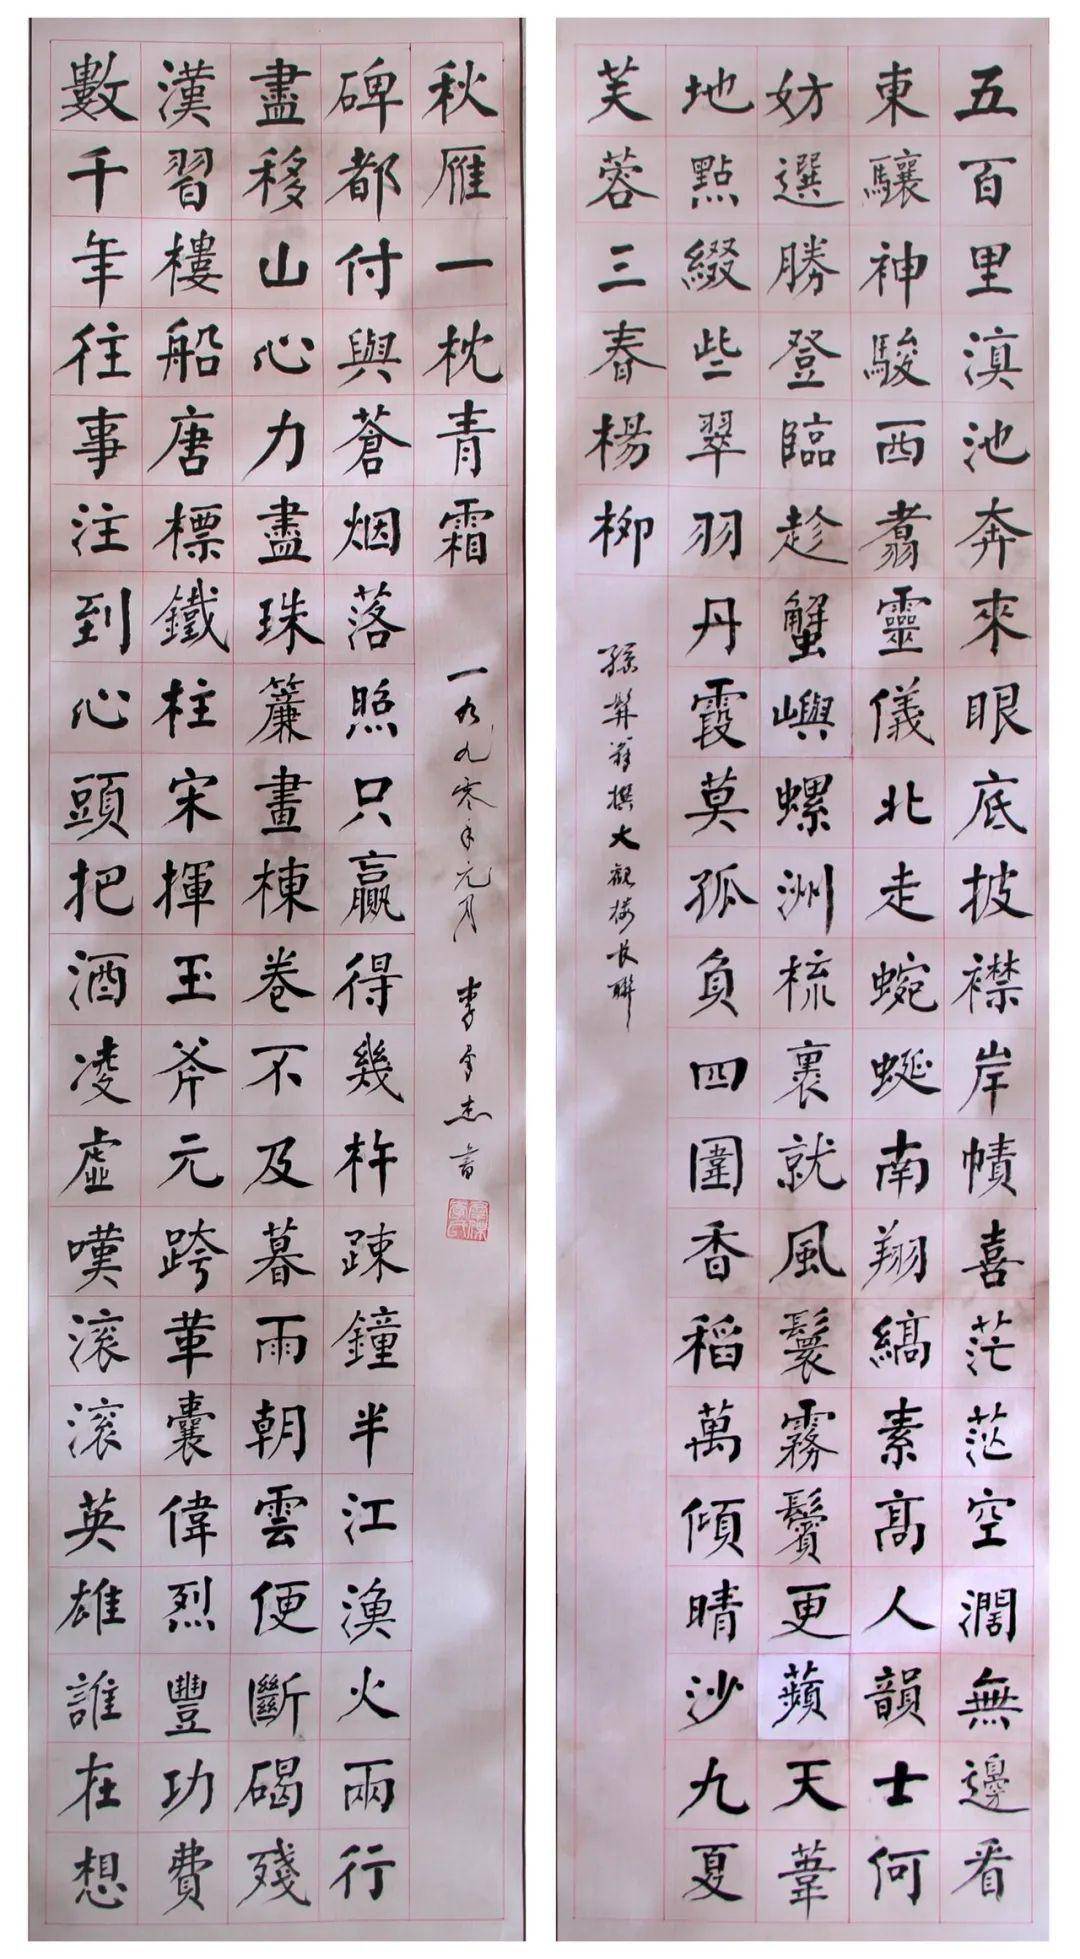 五百里滇池奔來眼底披襟岸幘喜茫茫空濶無邊看
東驤神駿西翥靈儀北走蜿蜒南翔縞素高人韻士何
妨選勝登臨趁蟹嶼螺洲梳裹就風鬟霧鬢更蘋天葦
地點綴些翠羽丹霞莫孤負四圍香稻萬傾晴沙九夏
芙蓉三春楊柳
孫髯翁撰大觀樓長聯
數千年往事注到心頭把酒凌虛嘆滚滚英雄誰在想
漢習樓船唐標鐵柱宋揮玉斧元跨革囊偉烈豐功費
盡移山心力盡珠簾畫棟卷不及暮雨朝雲便斷碣殘
碑都付與蒼烟落照只贏得幾杵疎鐘半江漁火兩行
秋雁一枕青霜
一九九零年元月 李群杰書